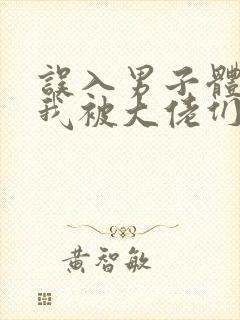 誤入男子體
我被大佬们
黃智敏